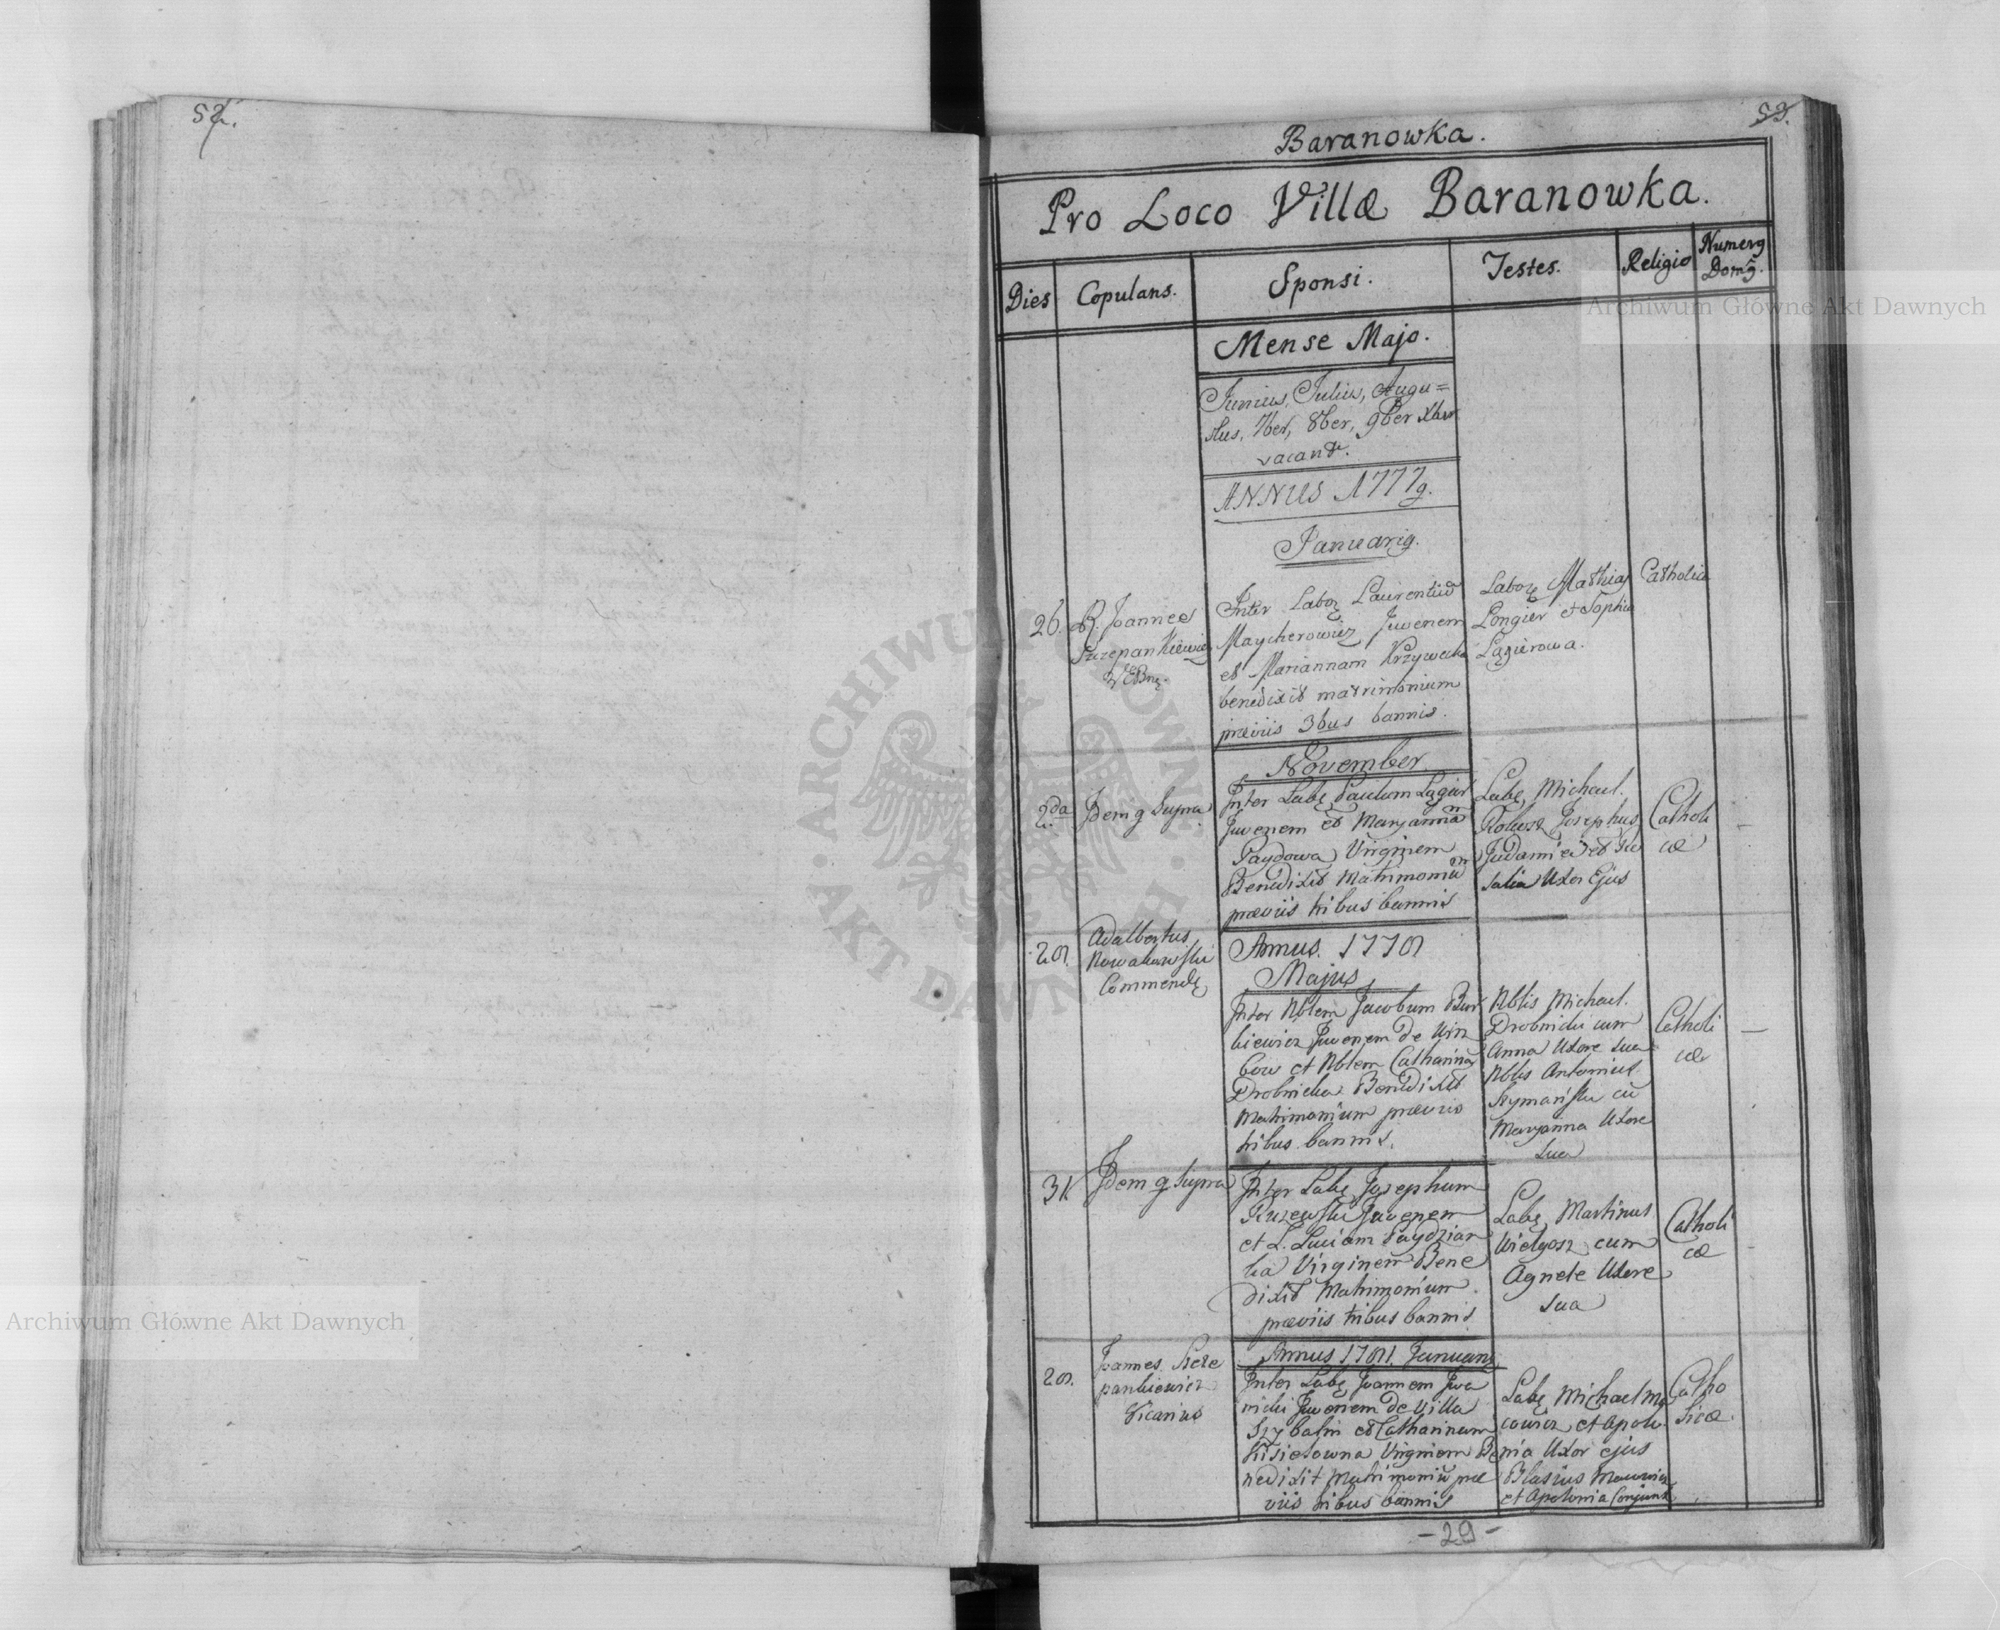 52.
53.
Baranowka.
Pro Loco Villæ Baranowka.
Dies
Copulans.
Sponsi.
Testes.
Religio
Numerg
Domg.
Mense Majo.
Junius, Julius, Augu=
stus, 7ber, 8ber, 9ber Xber
vacant.
ANNUS 1777g.
Januarig.
26.
R. Joannes
Szczepankiewicz
Inter Labor Laurentiū
Maycherowicz Juvenem
et Mariannam Krzywecka
benedixit matrimonium
præviis 3bus bannis.
Labor Mathias
Longier et Sophia
Lągierowa.
Catholica
November
2da
Idem q Supra
Inter Labę Paulum Lągier
Juvenem et Maryannā
Paydowa Virginem
Benedixit Matrimoniū
præviis tribus bannis
Labę Michael.
Josephus
et
Uxor Ejus
Catholi
cæ
28.
Adalbertus
Nowakowski
Commendę
Annus. 1778
Majus
Inter Nblem Jacobum Bur
kiewicz Juvenem de Wirz
bow et Nblem Catharinā
Drobnicka Benedixit
Matrimonium prævio
tribus bannis.
Nblis Michael.
Drobnicki cum
Anna Uxore sua
Nblis Antonius
Szymański cū
Maryanna Uxore
sua
Catholi
cæ
31
Idem q Supra
Inter Labę Josephum
Juvenem
et L. Luciam Paydziar
ka Virginem Bene
dixit Matrimonium
præviis tribus bannis
Labę Martinus
Wielgosz cum
Agnete Uxore
sua
Catholi
cæ
28.
Joannes Szcze
pankiewicz
Vicarius
Annus 1781 Januarig
Inter Labę Joannem Iwa
nicki Juvenem de Villa
et Catharinam
Kisielowna Virginem Be
nedixit Matrimoniū præ
viis tribus bannis
Labę Michael Ma
et Apolo
nia Uxor ejus
Blasius
et Apolonia
Catho
licæ.
-29-
Archiwum Główne Akt Dawnych
Archiwum Główne Akt Dawnych
ARCHIWUM GŁÓWNE AKT DAWNYCH